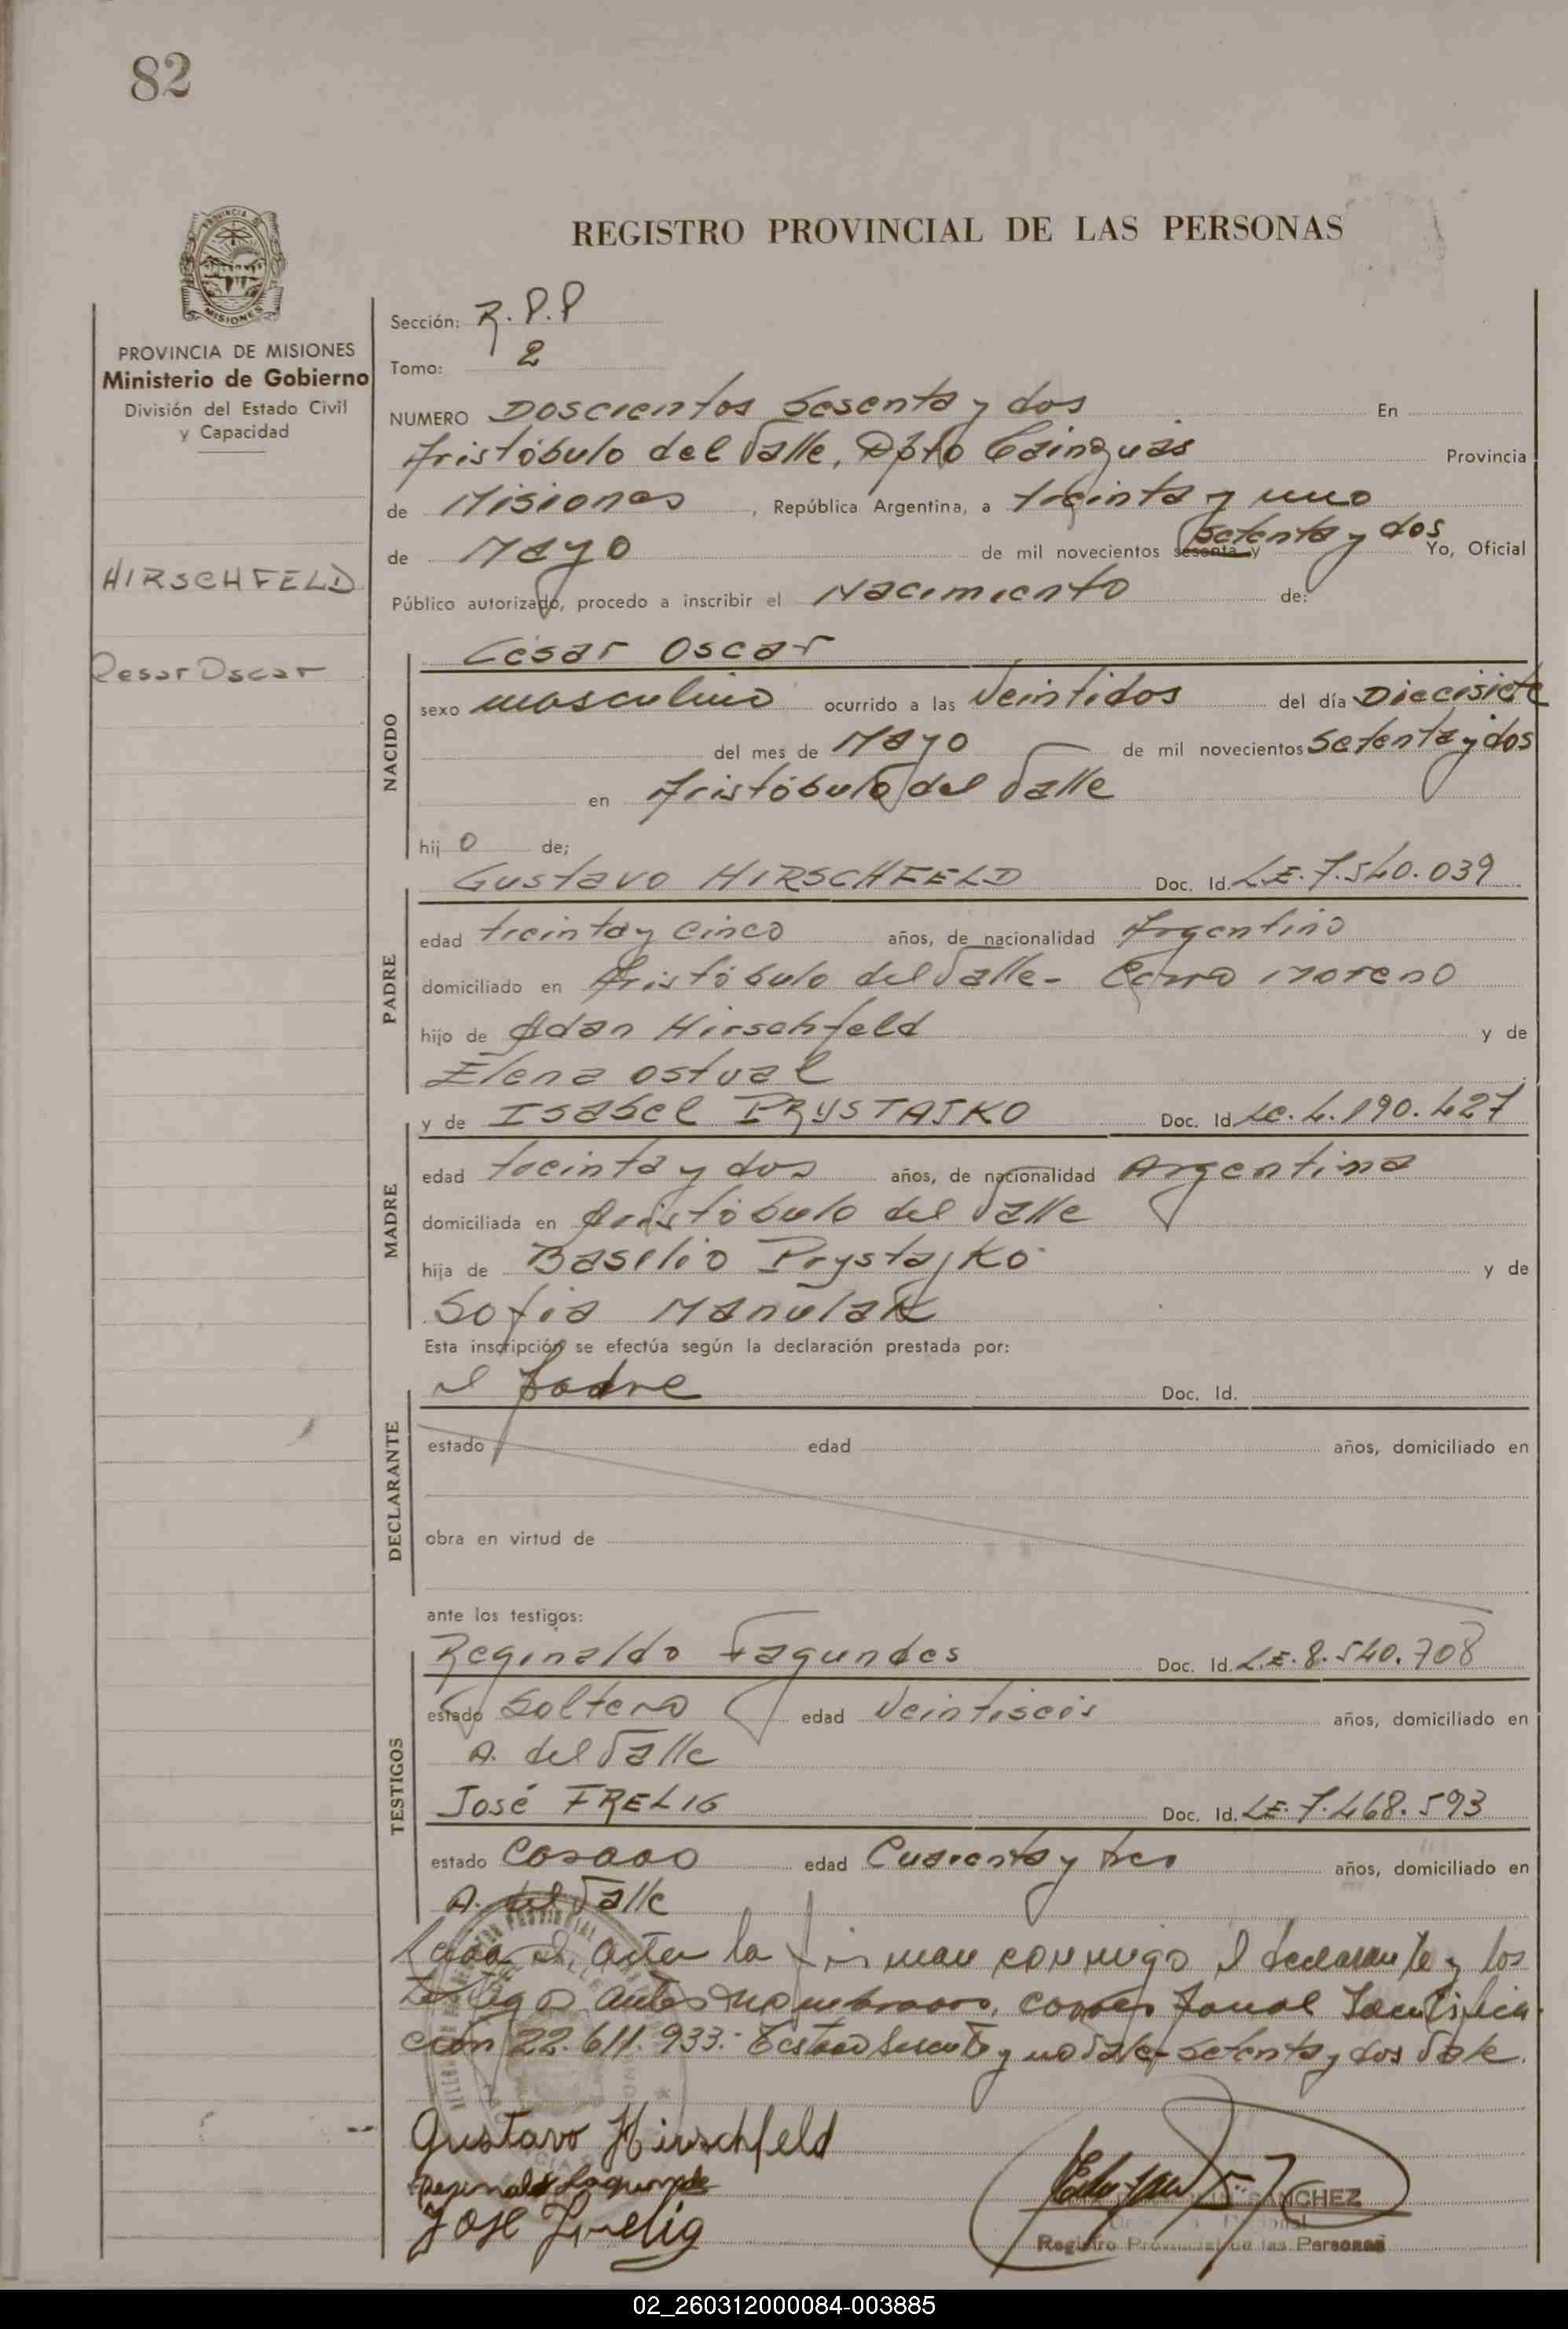 82
REGISTRO PROVINCIAL DE LAS PERSONAS
PROVINCIA DE MISIONES
Ministerio de Gobierno
División del Estado Civil
y Capacidad
HIRSCHFELD
Cesar Oscar
Sección: R.P.P
Tomo: 2
NUMERO Doscientos Sesenta y dos En
Aristóbulo del Valle, Dpto Cainguás Provincia
de Misiones, República Argentina, a treinta y uno
de Mayo de mil novecientos sesenta y Setenta y dos Yo, Oficial
Público autorizado, procedo a inscribir el Nacimiento de:
César Oscar
NACIDO
sexo masculino ocurrido a las Veintidos del día Diecisiete
del mes de Mayo de mil novecientos Setenta y dos
en Aristóbulo del Valle
hij o de;
Gustavo HIRSCHFELD Doc. Id. L.E. 7.540.039
PADRE
edad treinta y cinco años, de nacionalidad Argentino
domiciliado en Aristóbulo del Valle - Cerro Moreno
hijo de Adan Hirschfeld y de
Elena Ostual
y de Isabel PRYSTAJKO Doc. Id. LC. 4.190.427
MADRE
edad treinta y dos años, de nacionalidad Argentina
domiciliada en Aristóbulo del Valle
hija de Basilio Prystajko y de
Sofia Mañulak
Esta inscripción se efectúa según la declaración prestada por:
el padre Doc. Id.
DECLARANTE
estado edad años, domiciliado en
obra en virtud de
ante los testigos:
Reginaldo Fagundes Doc. Id. L.E. 8.540.708
TESTIGOS
estado Soltero edad Veintiseis años, domiciliado en
A. del Valle
José FRELIG Doc. Id. LE. 7.468.593
estado Casado edad Cuarenta y tres años, domiciliado en
A. del Valle
Leida el acta la firman conmigo el declarante y los
testigos antes nombrados, corres fonal Identifica-
ción 22.611.933.- Testado sesenta y no Vale - setenta y dos Vale.
Gustavo Hirschfeld
Reginaldo Fagundes
Jose Frelig
SANCHEZ
Registro Provincial de las Personas
02_260312000084-003885